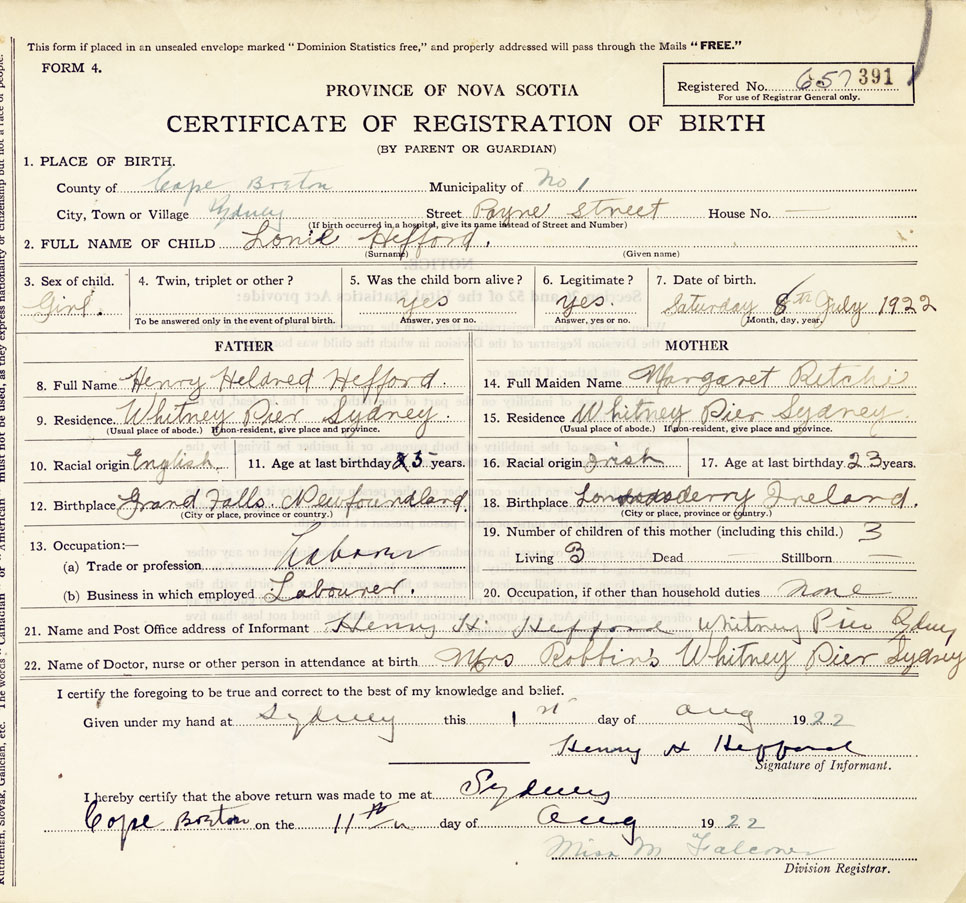 This form if placed in an unsealed envelope marked "Dominion Statistics free," and properly addressed will pass through the Mails "FREE."
FORM 4.
Registered No. 657 391
For use of Registrar General only.
PROVINCE OF NOVA SCOTIA
CERTIFICATE OF REGISTRATION OF BIRTH
(BY PARENT OR GUARDIAN)
1. PLACE OF BIRTH.
County of Cape Breton Municipality of No 1
City, Town or Village Sydney Street Payne Street House No. —
(If birth occurred in a hospital, give its name instead of Street and Number)
2. FULL NAME OF CHILD Hefford.
(Surname) (Given name)
3. Sex of child. 4. Twin, triplet or other? 5. Was the child born alive? 6. Legitimate? 7. Date of birth.
Girl. yes yes. Saturday 8th July 1922
To be answered only in the event of plural birth. Answer, yes or no. Answer, yes or no. Month, day, year.
FATHER MOTHER
8. Full Name Henry Heldred Hefford. 14. Full Maiden Name Margaret Ritchi
9. Residence Whitney Pier Sydney. 15. Residence Whitney Pier Sydney.
(Usual place of abode.) If non-resident, give place and province. (Usual place of abode.) If non-resident, give place and province.
10. Racial origin English. 11. Age at last birthday 25 years. 16. Racial origin Irish 17. Age at last birthday 23 years.
12. Birthplace Grand Falls. Newfoundland. 18. Birthplace Londonderry Ireland.
(City or place, province or country.) (City or place, province or country.)
13. Occupation:— 19. Number of children of this mother (including this child.) 3
(a) Trade or profession Laborer Living 3 Dead — Stillborn —
(b) Business in which employed Labourer. 20. Occupation, if other than household duties None
21. Name and Post Office address of Informant Henry H. Hefford Whitney Pier Sydney
22. Name of Doctor, nurse or other person in attendance at birth Mrs Robbin's Whitney Pier Sydney
I certify the foregoing to be true and correct to the best of my knowledge and belief.
Given under my hand at Sydney this 1st day of Aug 1922
Henry H Hefford
Signature of Informant.
I hereby certify that the above return was made to me at Sydney
Cape Breton on the 11th day of Aug 1922
Miss M Falconer
Division Registrar.